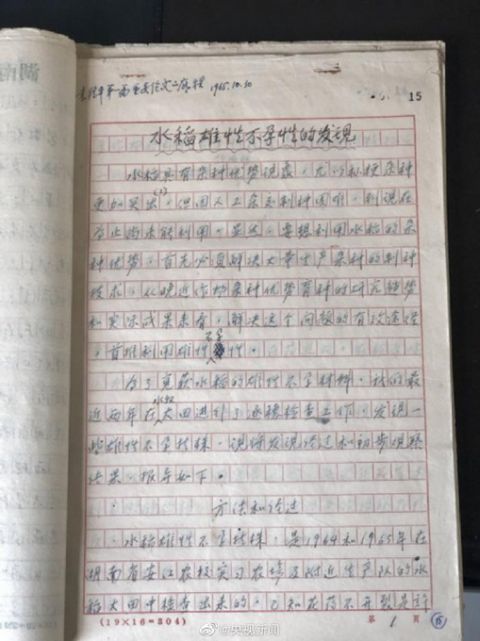 袁隆平第一篇重要论文二席稿 1965.10.10
15
湖南
水稻雄性不孕性的发现
水稻具有杂种优势现象，尤以籼粳杂种
更加突出，但因人工杂交制种困难，到现在
为止尚未能利用。显然，要想利用水稻的杂
种优势，首先必须解决大量生产杂种的制种
技术，从晚近作物杂种优势育种的研究趋势
和实际成果来看，解决这个问题的有效途径
，首推利用雄性不孕性。
为了获得水稻的雄性不孕材料，我们最
近两年在水稻大田进行了逐穗检查工作，发现一
些雄性不孕植株，现将发现经过和初步观察
结果，报导如下。
方法和经过
水稻雄性不孕植株，是1964和1965年在
湖南省安江农校实习农场及附近生产队的水
稻大田中检查出来的。已知花药不开裂是
(19×16=304)
第 1 页
@央视新闻